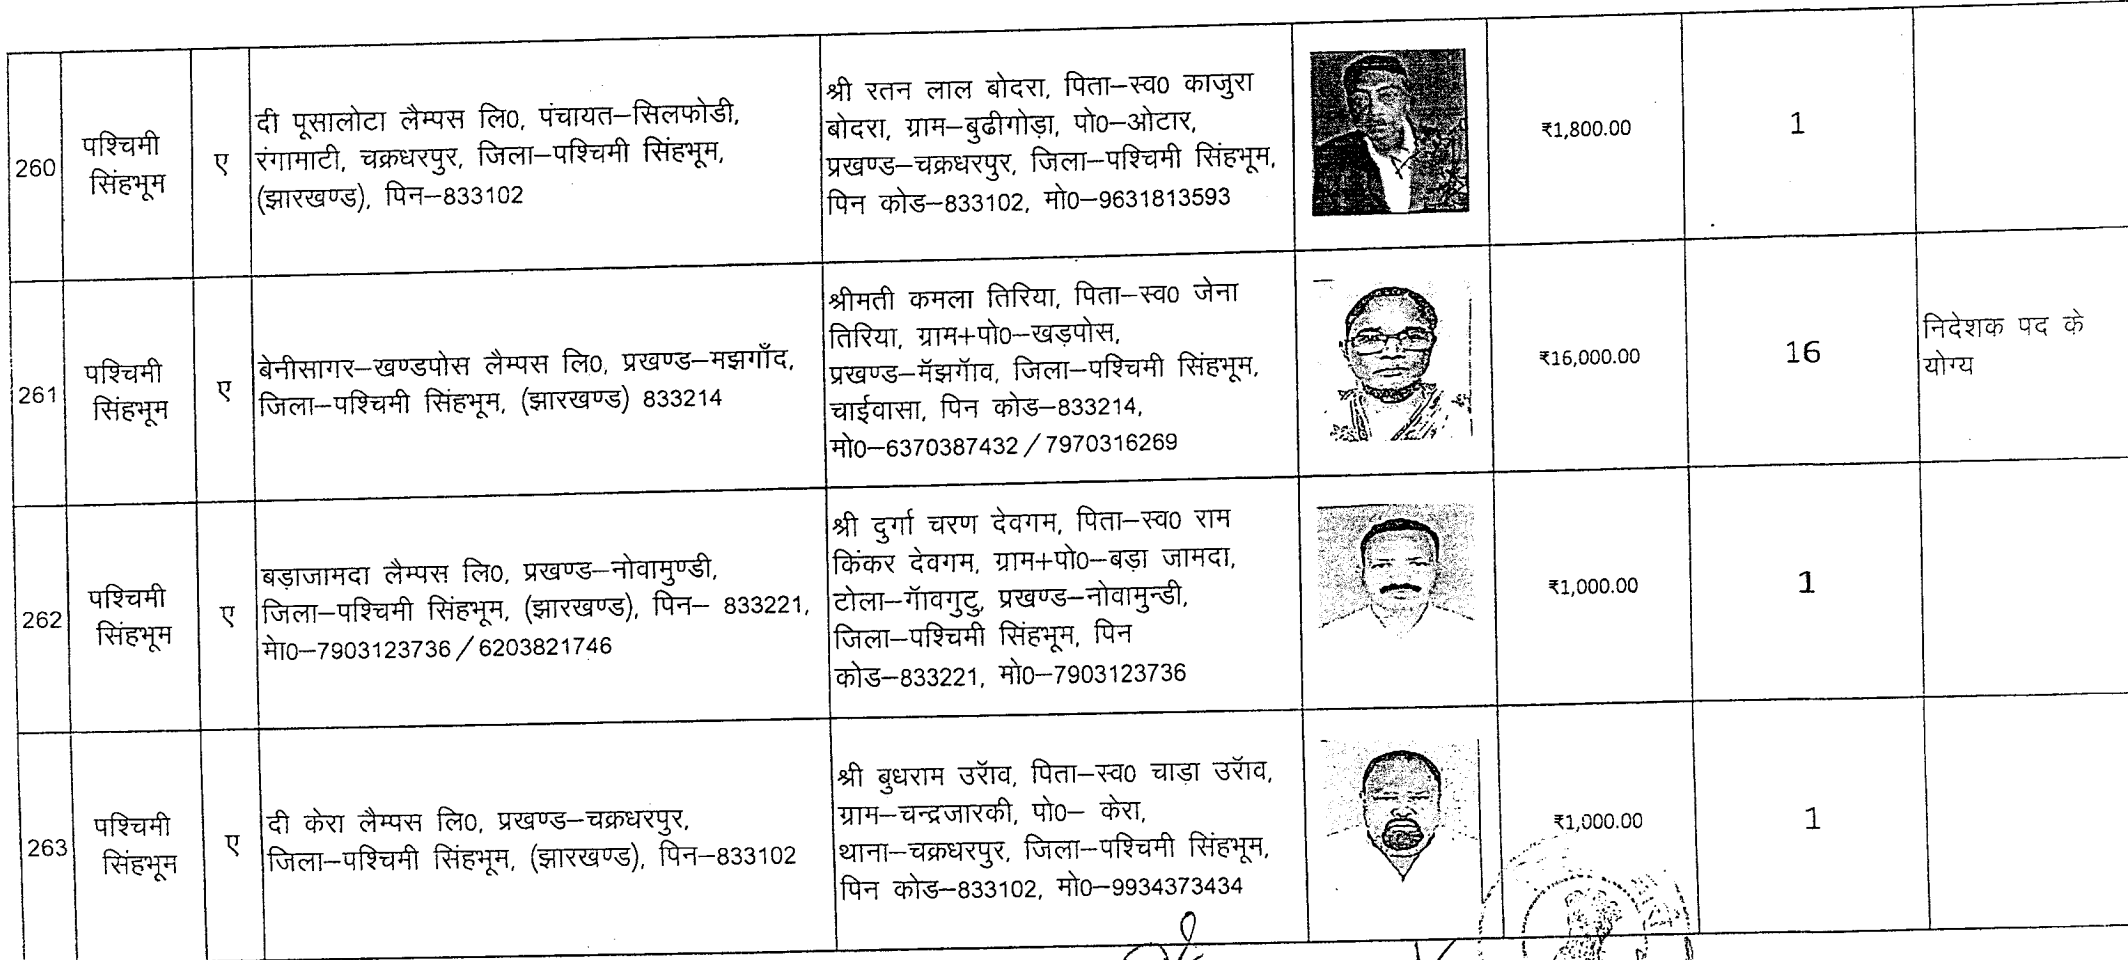 260
पश्चिमी
सिंहभूम
ए
दी पूसालोटा लैम्पस लि0, पंचायत–सिलफोडी,
रंगामाटी, चक्रधरपुर, जिला–पश्चिमी सिंहभूम,
(झारखण्ड), पिन–833102
श्री रतन लाल बोदरा, पिता–स्व0 काजुरा
बोदरा, ग्राम–बुढीगोड़ा, पो0–ओटार,
प्रखण्ड–चक्रधरपुर, जिला–पश्चिमी सिंहभूम,
पिन कोड–833102, मो0–9631813593
₹1,800.00
1
261
पश्चिमी
सिंहभूम
ए
बेनीसागर–खण्डपोस लैम्पस लि0, प्रखण्ड–मझगाँद,
जिला–पश्चिमी सिंहभूम, (झारखण्ड) 833214
श्रीमती कमला तिरिया, पिता–स्व0 जेना
तिरिया, ग्राम+पो0–खड़पोस,
प्रखण्ड–मॅझगॅाव, जिला–पश्चिमी सिंहभूम,
चाईवासा, पिन कोड–833214,
मो0–6370387432 / 7970316269
₹16,000.00
16
निदेशक पद के
योग्य
262
पश्चिमी
सिंहभूम
ए
बड़ाजामदा लैम्पस लि0, प्रखण्ड–नोवामुण्डी,
जिला–पश्चिमी सिंहभूम, (झारखण्ड), पिन– 833221,
मेा0–7903123736 / 6203821746
श्री दुर्गा चरण देवगम, पिता–स्व0 राम
किंकर देवगम, ग्राम+पो0–बड़ा जामदा,
टोला–गॅावगुटु, प्रखण्ड–नोवामुन्डी,
जिला–पश्चिमी सिंहभूम, पिन
कोड–833221, मो0–7903123736
₹1,000.00
1
263
पश्चिमी
सिंहभूम
ए
दी केरा लैम्पस लि0, प्रखण्ड–चक्रधरपुर,
जिला–पश्चिमी सिंहभूम, (झारखण्ड), पिन–833102
श्री बुधराम उरॅाव, पिता–स्व0 चाड़ा उरॅाव,
ग्राम–चन्द्रजारकी, पो0– केरा,
थाना–चक्रधरपुर, जिला–पश्चिमी सिंहभूम,
पिन कोड–833102, मो0–9934373434
₹1,000.00
1